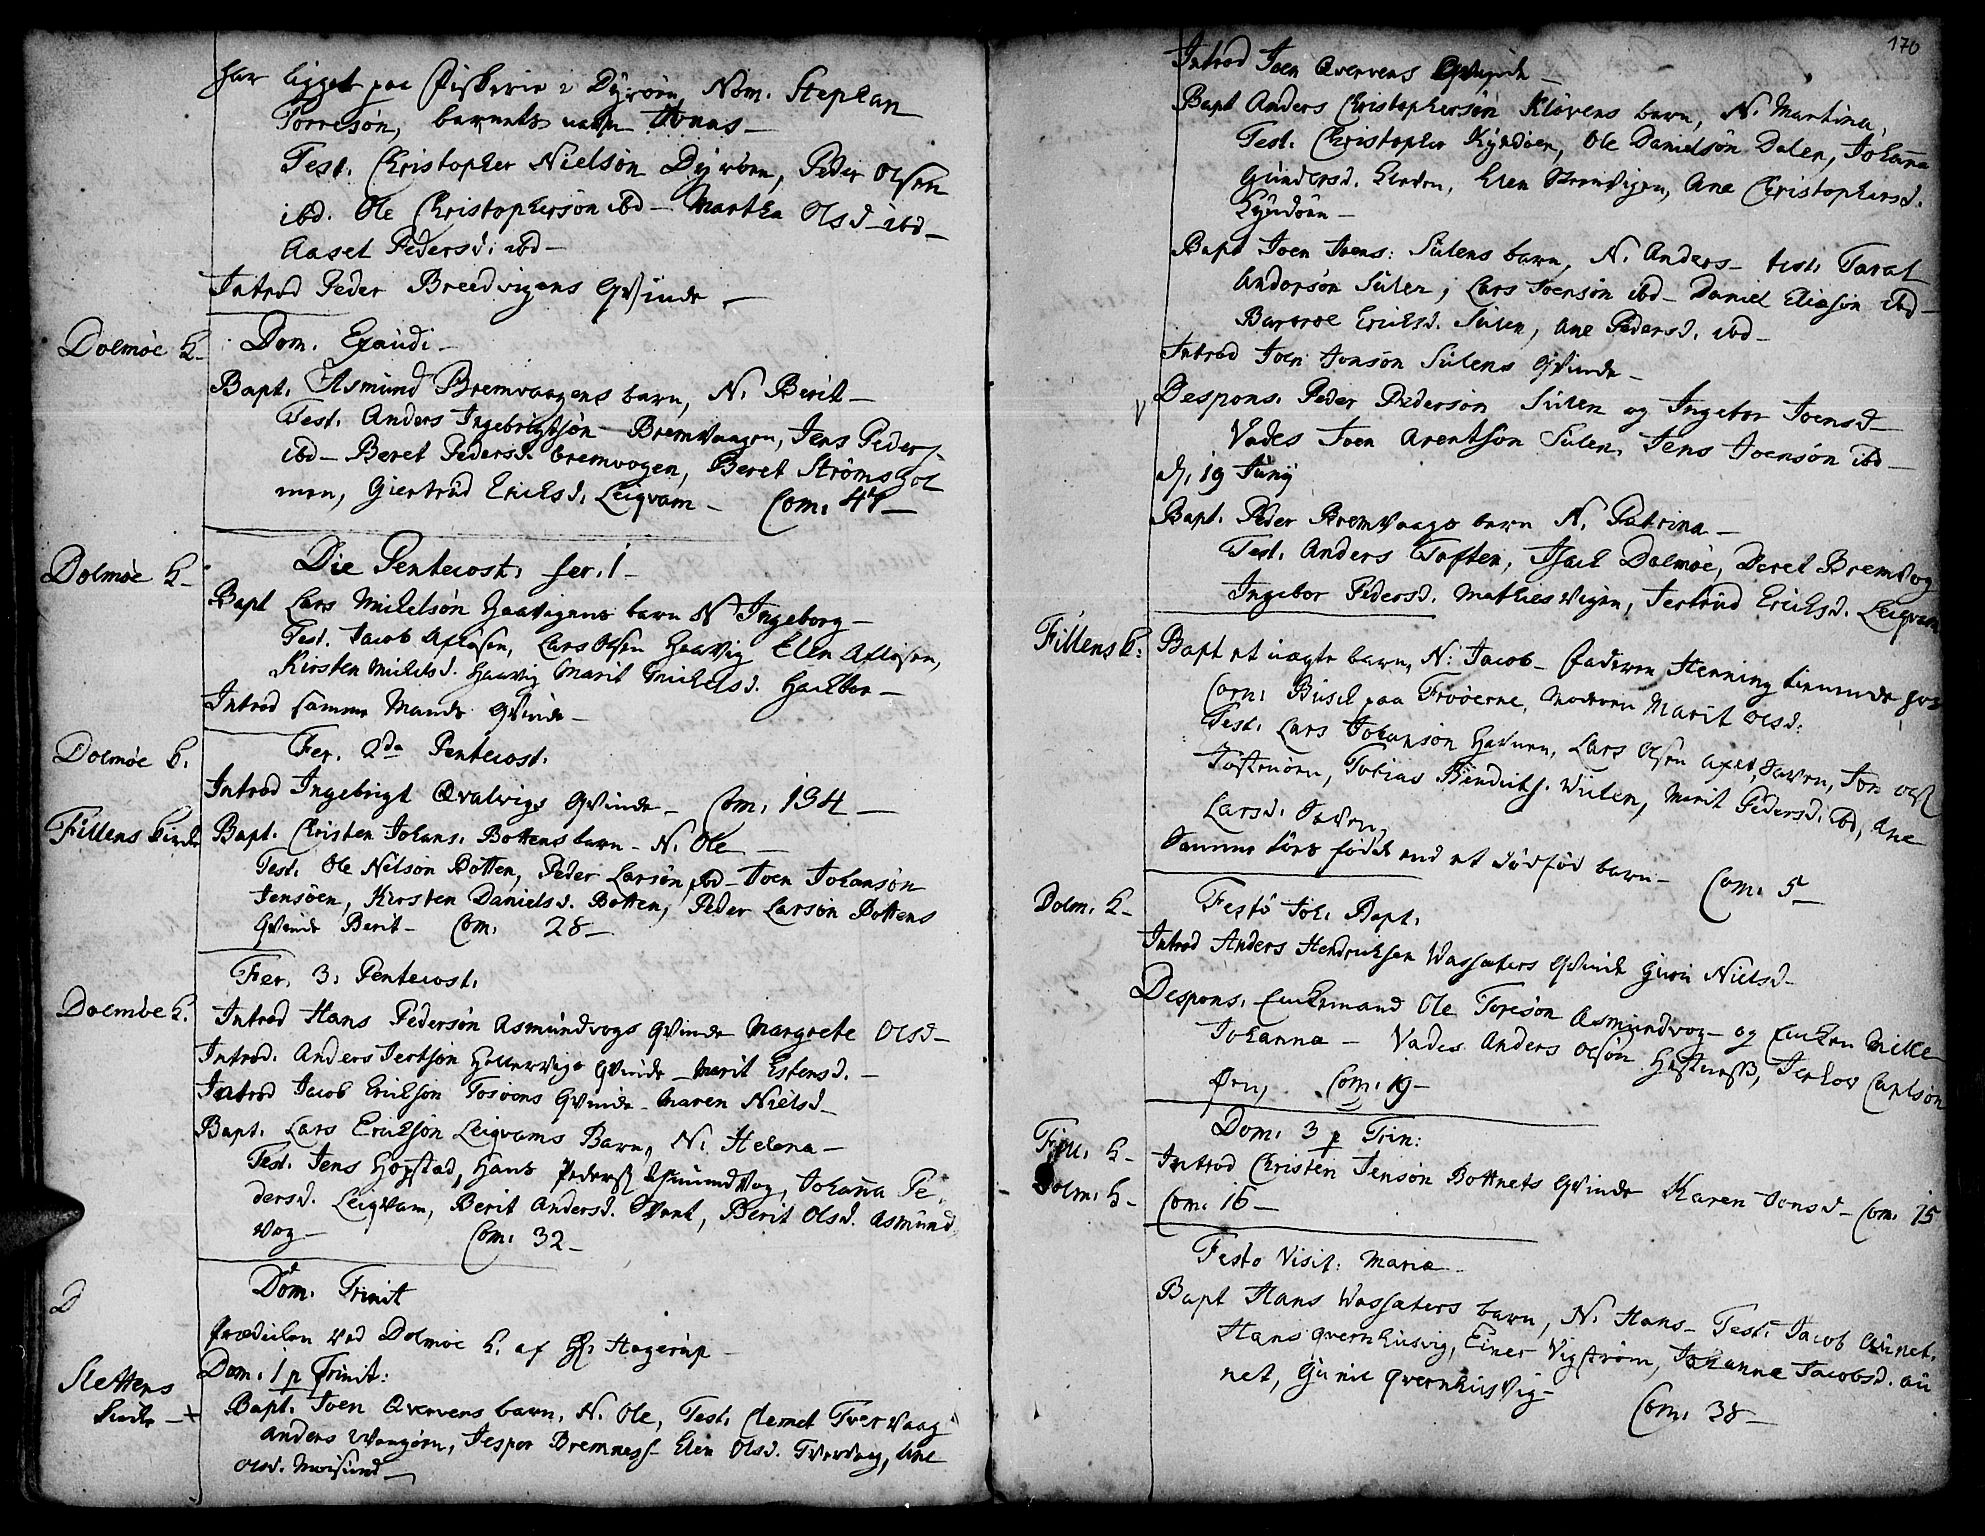 har ligget paa Fiskerie i Dyrøen, Nom. Stephan
Torresøn, barnets navn Jonas —
Test. Christopher Nielsøn Dyrøen, Peder Olsen
ibd. Ole Christophersøn ibd — Martha Olsd. ibd —
Aasel Pedersd. ibd —
Introd Peder Breedvigens Qvinde —
Dolmøe K. Dom. Exaudi —
Bapt. Asmund Bremvaagens barn, N. Berit —
Test. Anders Ingebrigtsøn Bremvaagen, Jens Peders.
ibd — Beret Pedersd. bremvogen, Beret Strømshol
men, Giertrud Ericksd. Leiqvam — Com. 47 —
Dolmøe K — Die Pentecost. fer. 1 —
Bapt Lars Mickelsøn Haavigens barn N Ingeborg —
Test. Jacob Afløsen, Lars Olsen Haavig Elen Afløsen,
Kirsten Mickelsd. Haavig Marit Mickelsd. Hackben —
Introd samme Mands Qvinde —
Dolmøe K. Fer. 2da Pentecost.
Introd Ingebrigt Qvalvigs Qvinde — Com. 134 —
Fillens Kircke Bapt. Christen Johans. Bottens barn — N. Ole —
Test. Ole Nelsøn Botten, Peder Larsøn ibd — Joen Johansøn
Jensøen, Kirsten Danielsd. Botten, Peder Larsøn Bottens
Qvinde Berit — Com. 28 —
Fer. 3. Pentecost.
Dolmøe K. Introd Hans Pedersøn Asmundvogs Qvinde Margrete Olsd —
Introd. Anders Jertsøn Hellervigs Qvinde — Marit Estensd. —
Introd Jacob Ericksøn Tosøens Qvinde — Maren Nielsd —
Bapt. Lars Ericksøn Leigvams Barn, N. Helena —
Test. Jens Hopstad, Hans Peders. Asmundvog, Johanna Pe,
dersd. Leiqvam, Berit Andersd. Qvent, Berit Olsd. Asmund
vog — Com. 32 —
D Dom. Trinit
Prædiken ved Dolmøe K. af Hr. Hagerup —
Dom. 1 p Trinit:
Slettens Kircke — + Bapt. Joen Qverens barn, N. Ole, Test. Clemet Tvervaag
Anders Vaagøen, Jespor Bremness Elen Olsd. Tvervaag, Ane
Olsd. Morsund —
170
Introd Joen Qverens Qvinde —
Bapt Anders Christophersøn Kløvens barn, N. Martina,
Test. Christopher Kyndøen, Ole Danielsøn Dalen, Johanna
Gundersd. Elen Strømvigen, Ane Christophersd.
Kyndøen —
Bapt Joen Joens: Sulens barn, N. Anders — test. Taral
Andersøn Sulen, Lars Joensøn ibd — Daniel Eliasøn ibd —
Barbroe Ericksd. Sulen, Ane Pedersd. ibd —
Introd Joen Jonsøn Sulens Qvinde —
V Despons. Peder Pedersøn Sulen og Ingebor Joensd —
Vades Joen Arentsøn Sulen, Jens Joensøn ibd —
d. 19 Junij
Bapt. Peder Bremvaags barn N. Petrina —
Test. Anders Toften, Isack Dolmøe, Beret Bremvog
Ingebor Pedersd. Mathiesvigen, Jertrud Ericksd. Leiqvam
Fillens K. Bapt et uægte barn, N. Jacob — faderen Henning tienende hos
Corn: Busck paa Frøerne, Moderen Marit Olsd.
Test. Lars Johansøn Lars Olsen Jon Ols
Tobias Hendrichs. Marit Pedersd. ibd, Ane
Larsd.
Samme føed end et dødfød barn — Com. 5 —
Dolm. K — Festo Joh. Bapt.
Introd Anders Hendricksen Vassaters Qvinde Guru Nielsd —
Despons. Enckemand Ole Toresøn Asmundvog — og Encken
Johanna — Vades Anders Olsøn Hestness, Carlsøn
Øen, Com. 19 —
Dom. 3 p Trin:
Fill. K — Introd Christen Jensøn Bottnets Qvinde Karen Jonsd — Com. 15
Dolm. K — Com. 16 —
Festo Visit. Mariæ —
Bapt Hans Wassaters barn, N. Hans — Test. Jacob Aunet.
Hans Qvernhusvig, Einer Vigstrøm, Johanna Jacobsd. Au
net, Gunie Qvernhusvig — Com. 38 —